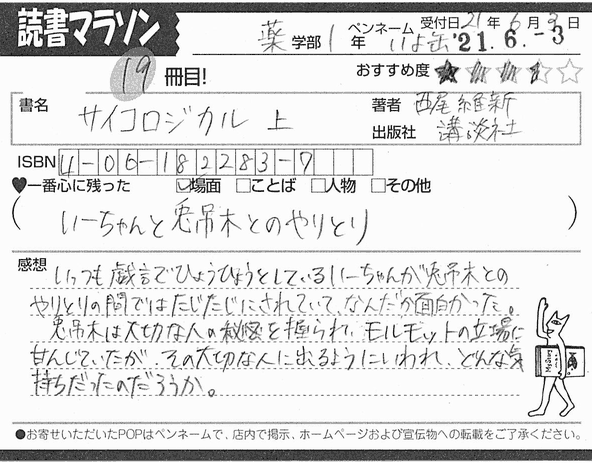 読書マラソン
薬学部 1年 ペンネーム いよ缶 受付日 21年 6月 3日
'21. 6. - 3
19冊目! おすすめ度 ★★★★☆
書名 サイコロジカル 上 著者 西尾維新
出版社 講談社
ISBN 4-06-182283-7
♥一番心に残った ☑場面 □ことば □人物 □その他
(いーちゃんと兎吊木とのやりとり)
感想 いつも戯言でひょうひょうとしているいーちゃんが兎吊木との
やりとりの間ではたじたじにされていて、なんだか面白かった。
兎吊木は大切な人の秘密を握られ、モルモットの立場に
甘んじていたが、その大切な人に出るようにいわれ、どんな気
持ちだったのだろうか。
●お寄せいただいたPOPはペンネームで、店内で掲示、ホームページおよび宣伝物への転載をご了承ください。